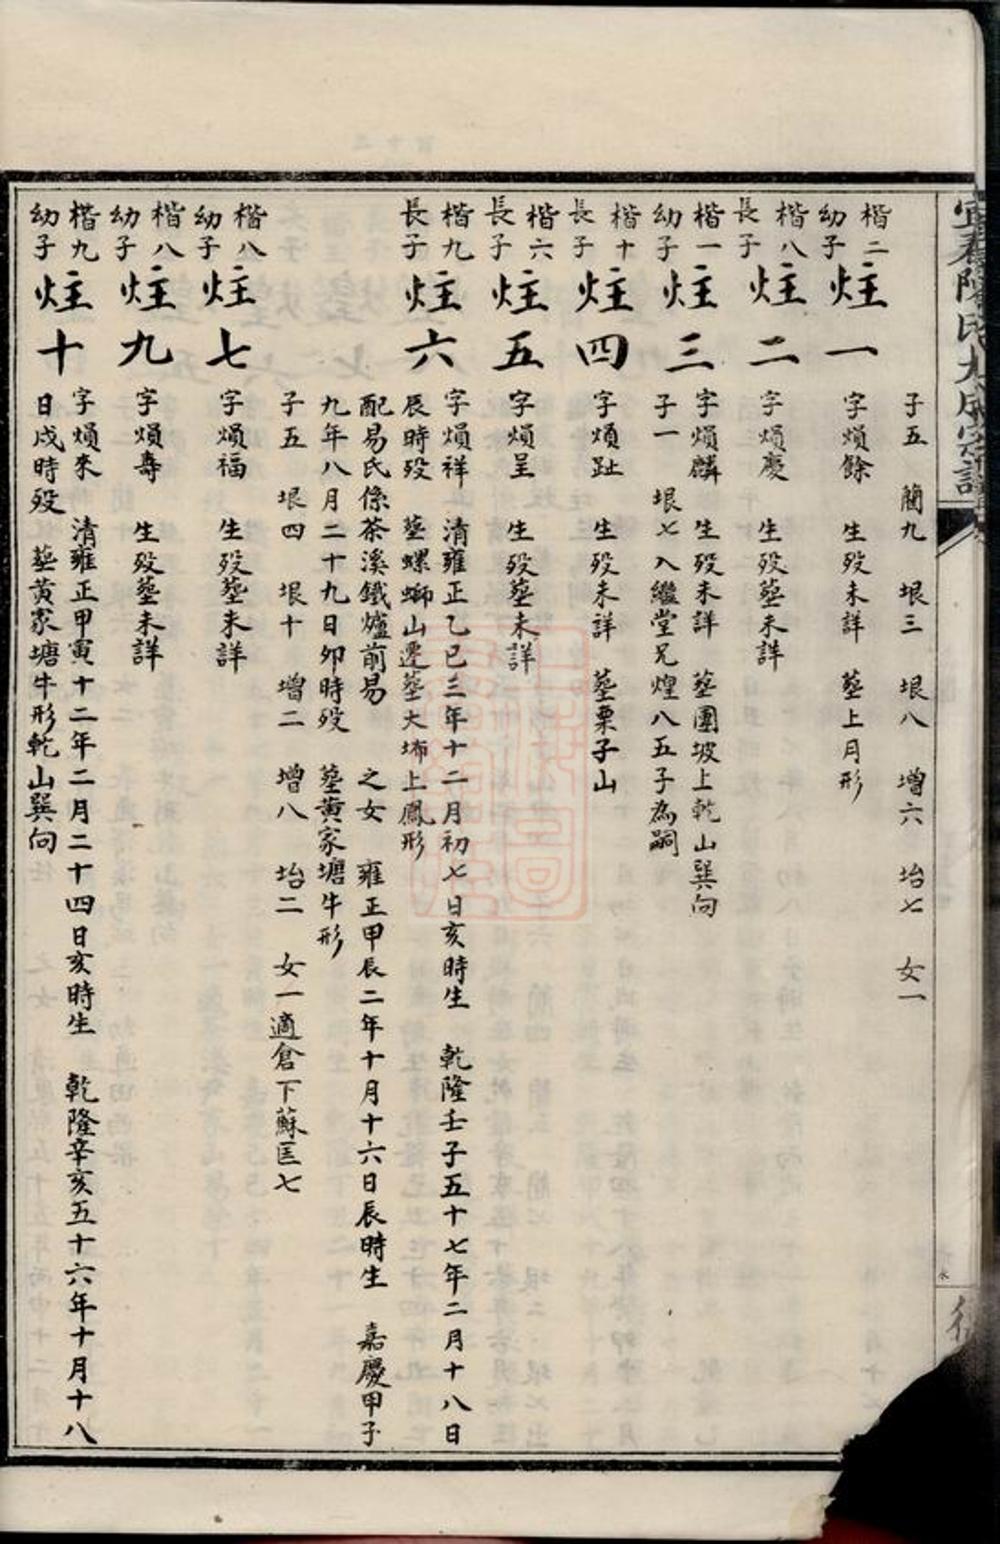 子五　蕳九　垠三　垠八　增六　垥七　女一
楷二幼子 炷一 字熉餘　生歿未詳　塟上月形
楷八長子 炷二 字熉慶　生歿塟未詳
楷一幼子 炷三 字熉麟　生歿未詳　塟團坡上乾山巽向
子一　垠七入繼堂兄煌八五子為嗣
楷十長子 炷四 字熉趾　生歿未詳　塟栗子山
楷六長子 炷五 字熉呈　生歿塟未詳
楷九長子 炷六 字熉祥　清雍正乙巳三年十二月初七日亥時生　乾隆壬子五十七年二月十八日
辰時歿　塟螺螄山遷塟大㘵上鳳形
配易氏係茶溪鐵爐前易　之女　雍正甲辰二年十月十六日辰時生　嘉慶甲子
九年八月二十九日卯時歿　塟黄家塘牛形
子五　垠四　垠十　增二　增八　垥二　女一適倉下蘇匡七
楷八幼子 炷七 字熉福　生歿塟未詳
楷八幼子 炷九 字熉壽　生歿塟未詳
楷九幼子 炷十 字熉來　清雍正甲寅十二年二月二十四日亥時生　乾隆辛亥五十六年十月十八
日戌時歿　塟黄家塘牛形乾山巽向